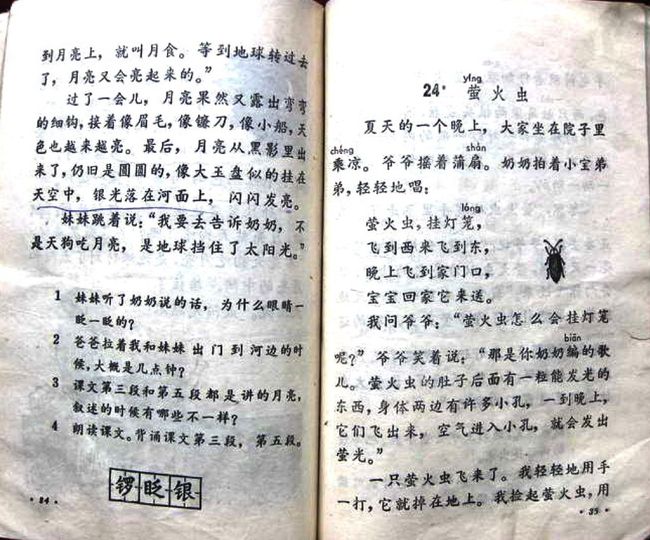 到月亮上，就叫月食。等到地球转过去
了，月亮又会亮起来的。”
过了一会儿，月亮果然又露出弯弯
的细钩，接着像眉毛，像镰刀，像小船，天
色也越来越亮。最后，月亮从黑影里出
来了，仍旧是圆圆的，像大玉盘似的挂在
天空中，银光落在河面上，闪闪发亮。
妹妹跳着说：“我要去告诉奶奶，不
是天狗吃月亮，是地球挡住了太阳光。”
1 妹妹听了奶奶说的话，为什么眼睛一
眨一眨的？
2 爸爸拉着我和妹妹出门到河边的时
候，大概是几点钟？
3 课文第三段和第五段都是讲的月亮，
叙述的时候有哪些不一样？
4 朗读课文。背诵课文第三段，第五段。
锣眨银
·34·
yíng
24* 萤火虫
夏天的一个晚上，大家坐在院子里
chéng shàn
乘凉。爷爷摇着蒲扇。奶奶拍着小宝弟
弟，轻轻地唱：
lóng
萤火虫，挂灯笼，
飞到西来飞到东，
晚上飞到家门口，
宝宝回家它来送。
我问爷爷：“萤火虫怎么会挂灯笼
biān
呢？”爷爷笑着说：“那是你奶奶编的歌
儿。萤火虫的肚子后面有一粒能发光的
东西，身体两边有许多小孔，一到晚上，
它们飞出来，空气进入小孔，就会发出
萤光。”
一只萤火虫飞来了。我轻轻地用手
一打，它就掉在地上。我捡起萤火虫，用
·35·